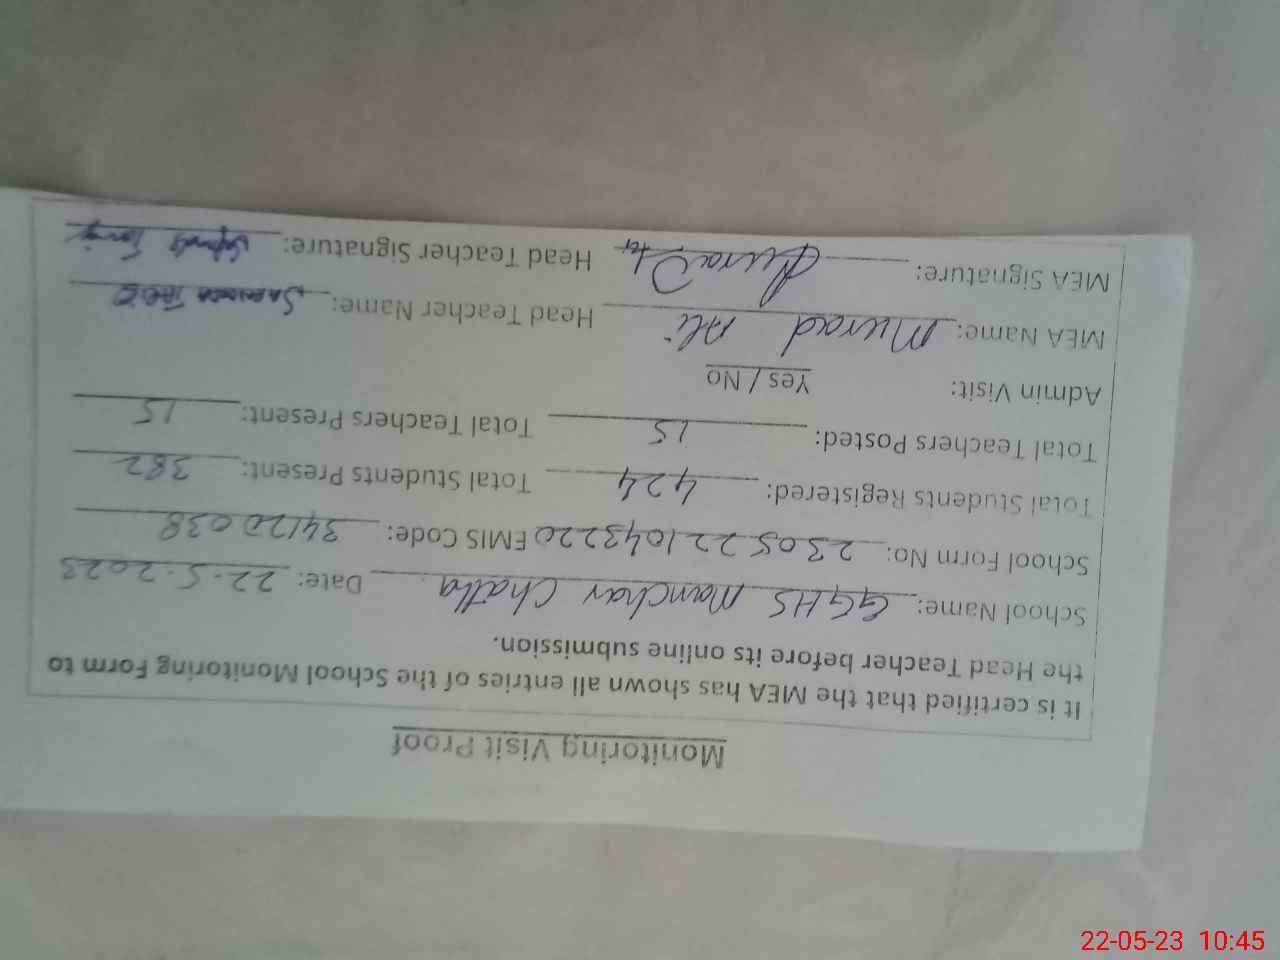 Monitoring Visit Proof
It is certified that the MEA has shown all entries of the School Monitoring Form to
the Head Teacher before its online submission.
School Name: GGHS Manchar Chatha Date: 22.5.2023
School Form No: 2305221043220 EMIS Code: 34120038
Total Students Registered: 424 Total Students Present: 382
Total Teachers Posted: 15 Total Teachers Present: 15
Admin Visit: Yes / No
MEA Name: Murad Ali Head Teacher Name:
MEA Signature: Head Teacher Signature:
22-05-23 10:45